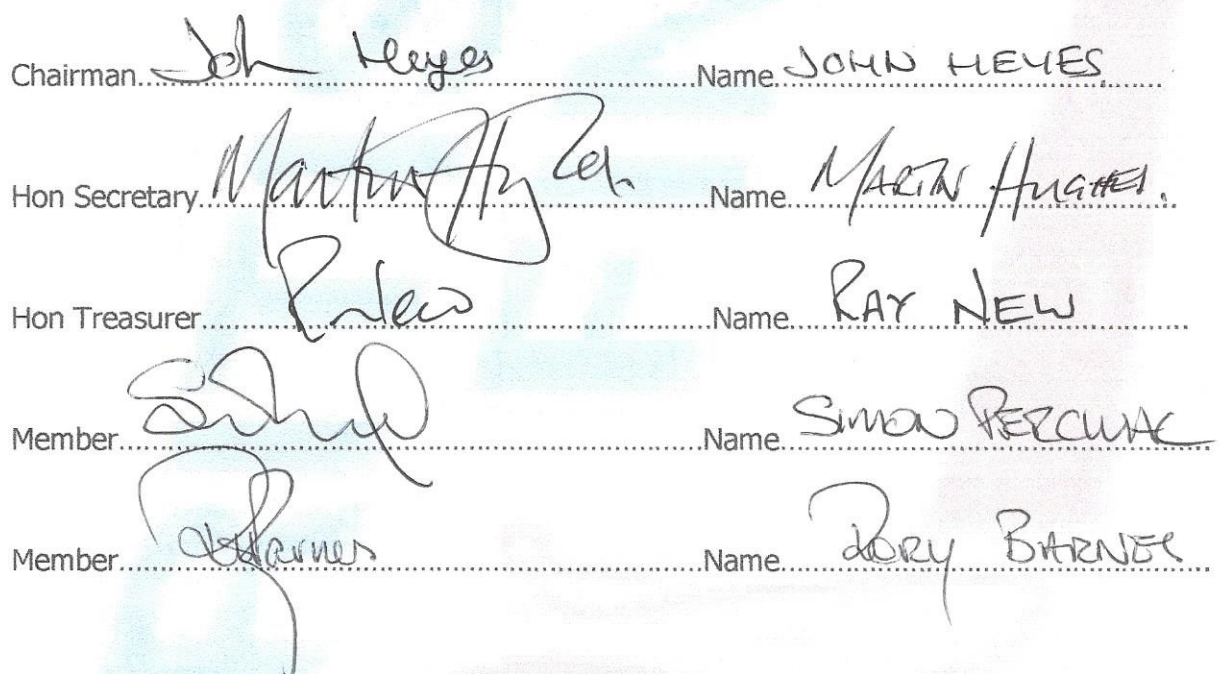 Chairman John Heyes Name JOHN HEYES
Hon Secretary Martin Hughes Name MARTIN HUGHES.
Hon Treasurer R New Name RAY NEW
Member Name SIMON PERCIVAL
Member Barnes Name RORY BARNES